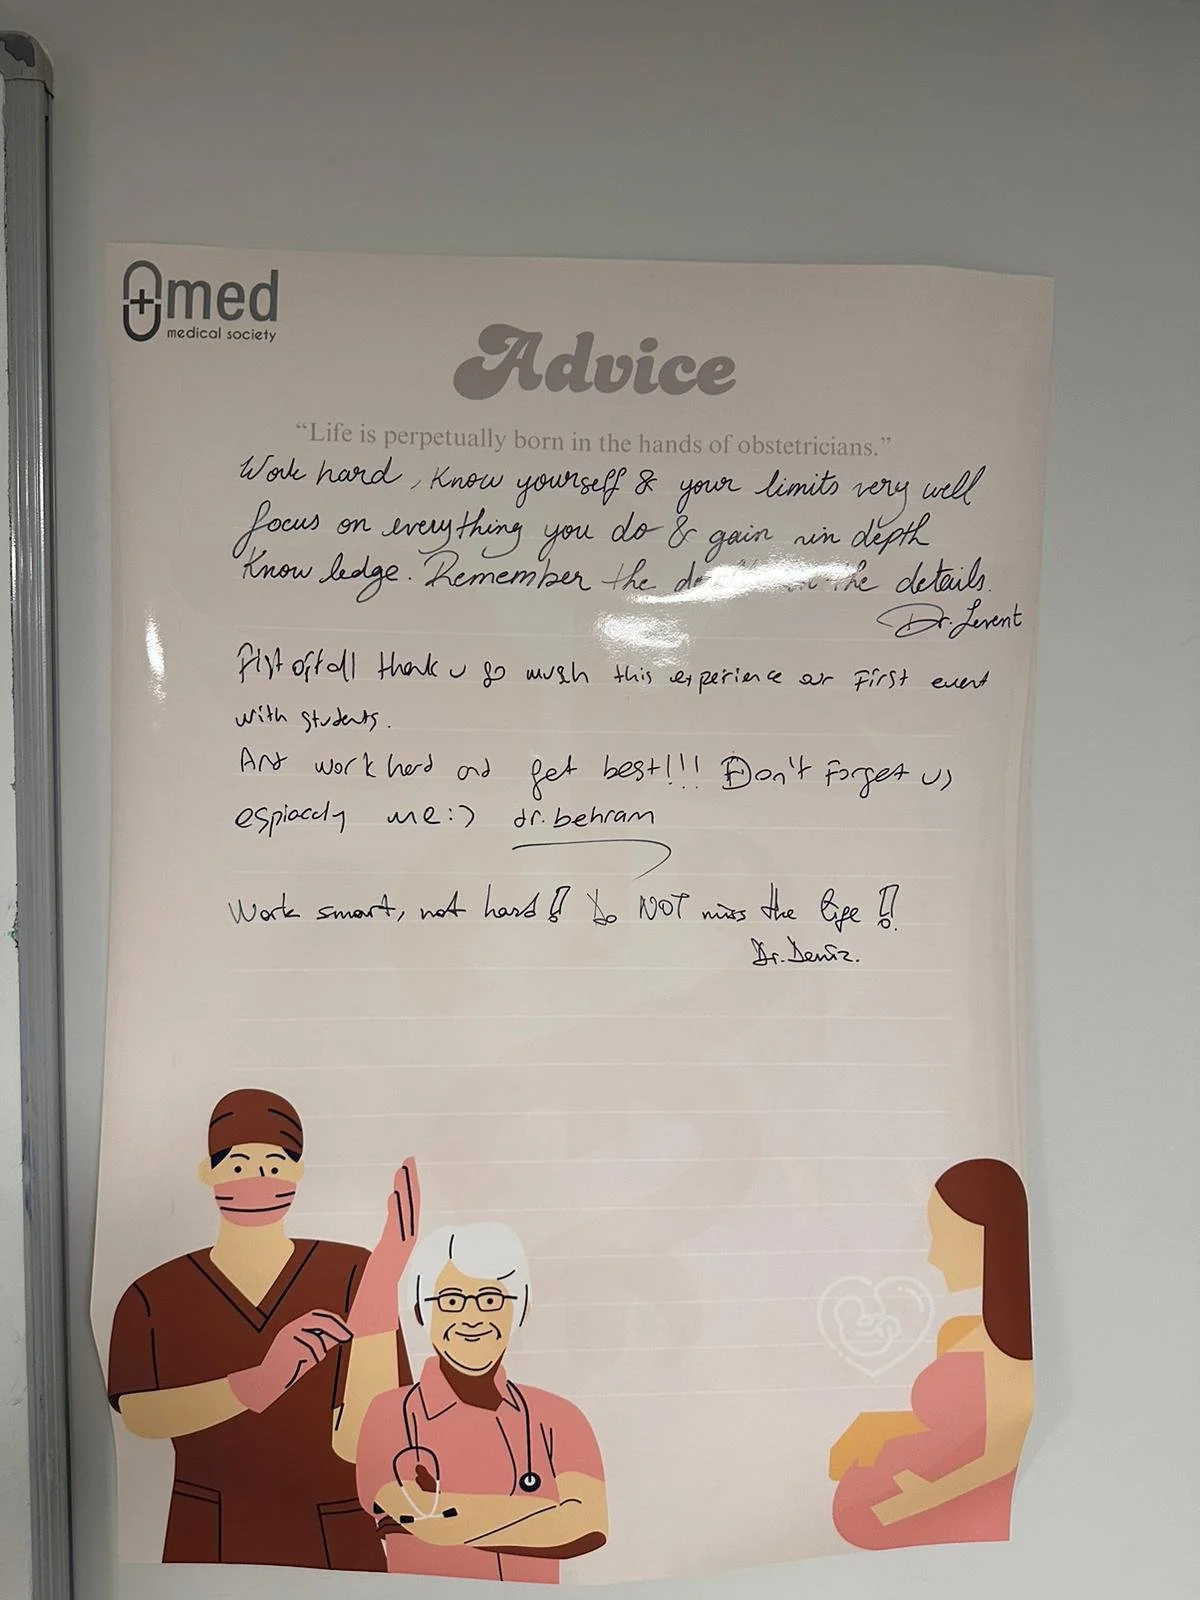 med
medical society
Advice
“Life is perpetually born in the hands of obstetricians.”
Work hard, Know yourself & your limits very well
focus on everything you do & gain in depth
Knowledge. Remember the the details.
Dr. Levent
Fist of all thank u so much this experience our First event
with students.
And work hard and get best!!! Don't Forget us
espiaccly me:) dr.behram
Work smart, not hard!! Do NOT miss the life!!
Dr.Deniz.